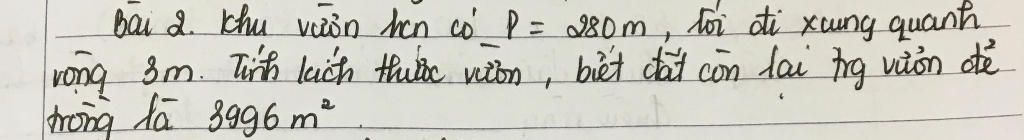 Bài 2. Khu vườn hcn có P = 280m, lối đi xung quanh
rộng 3m. Tính kích thước vườn, biết đất còn lại trg vườn để
trồng là 3996 m²